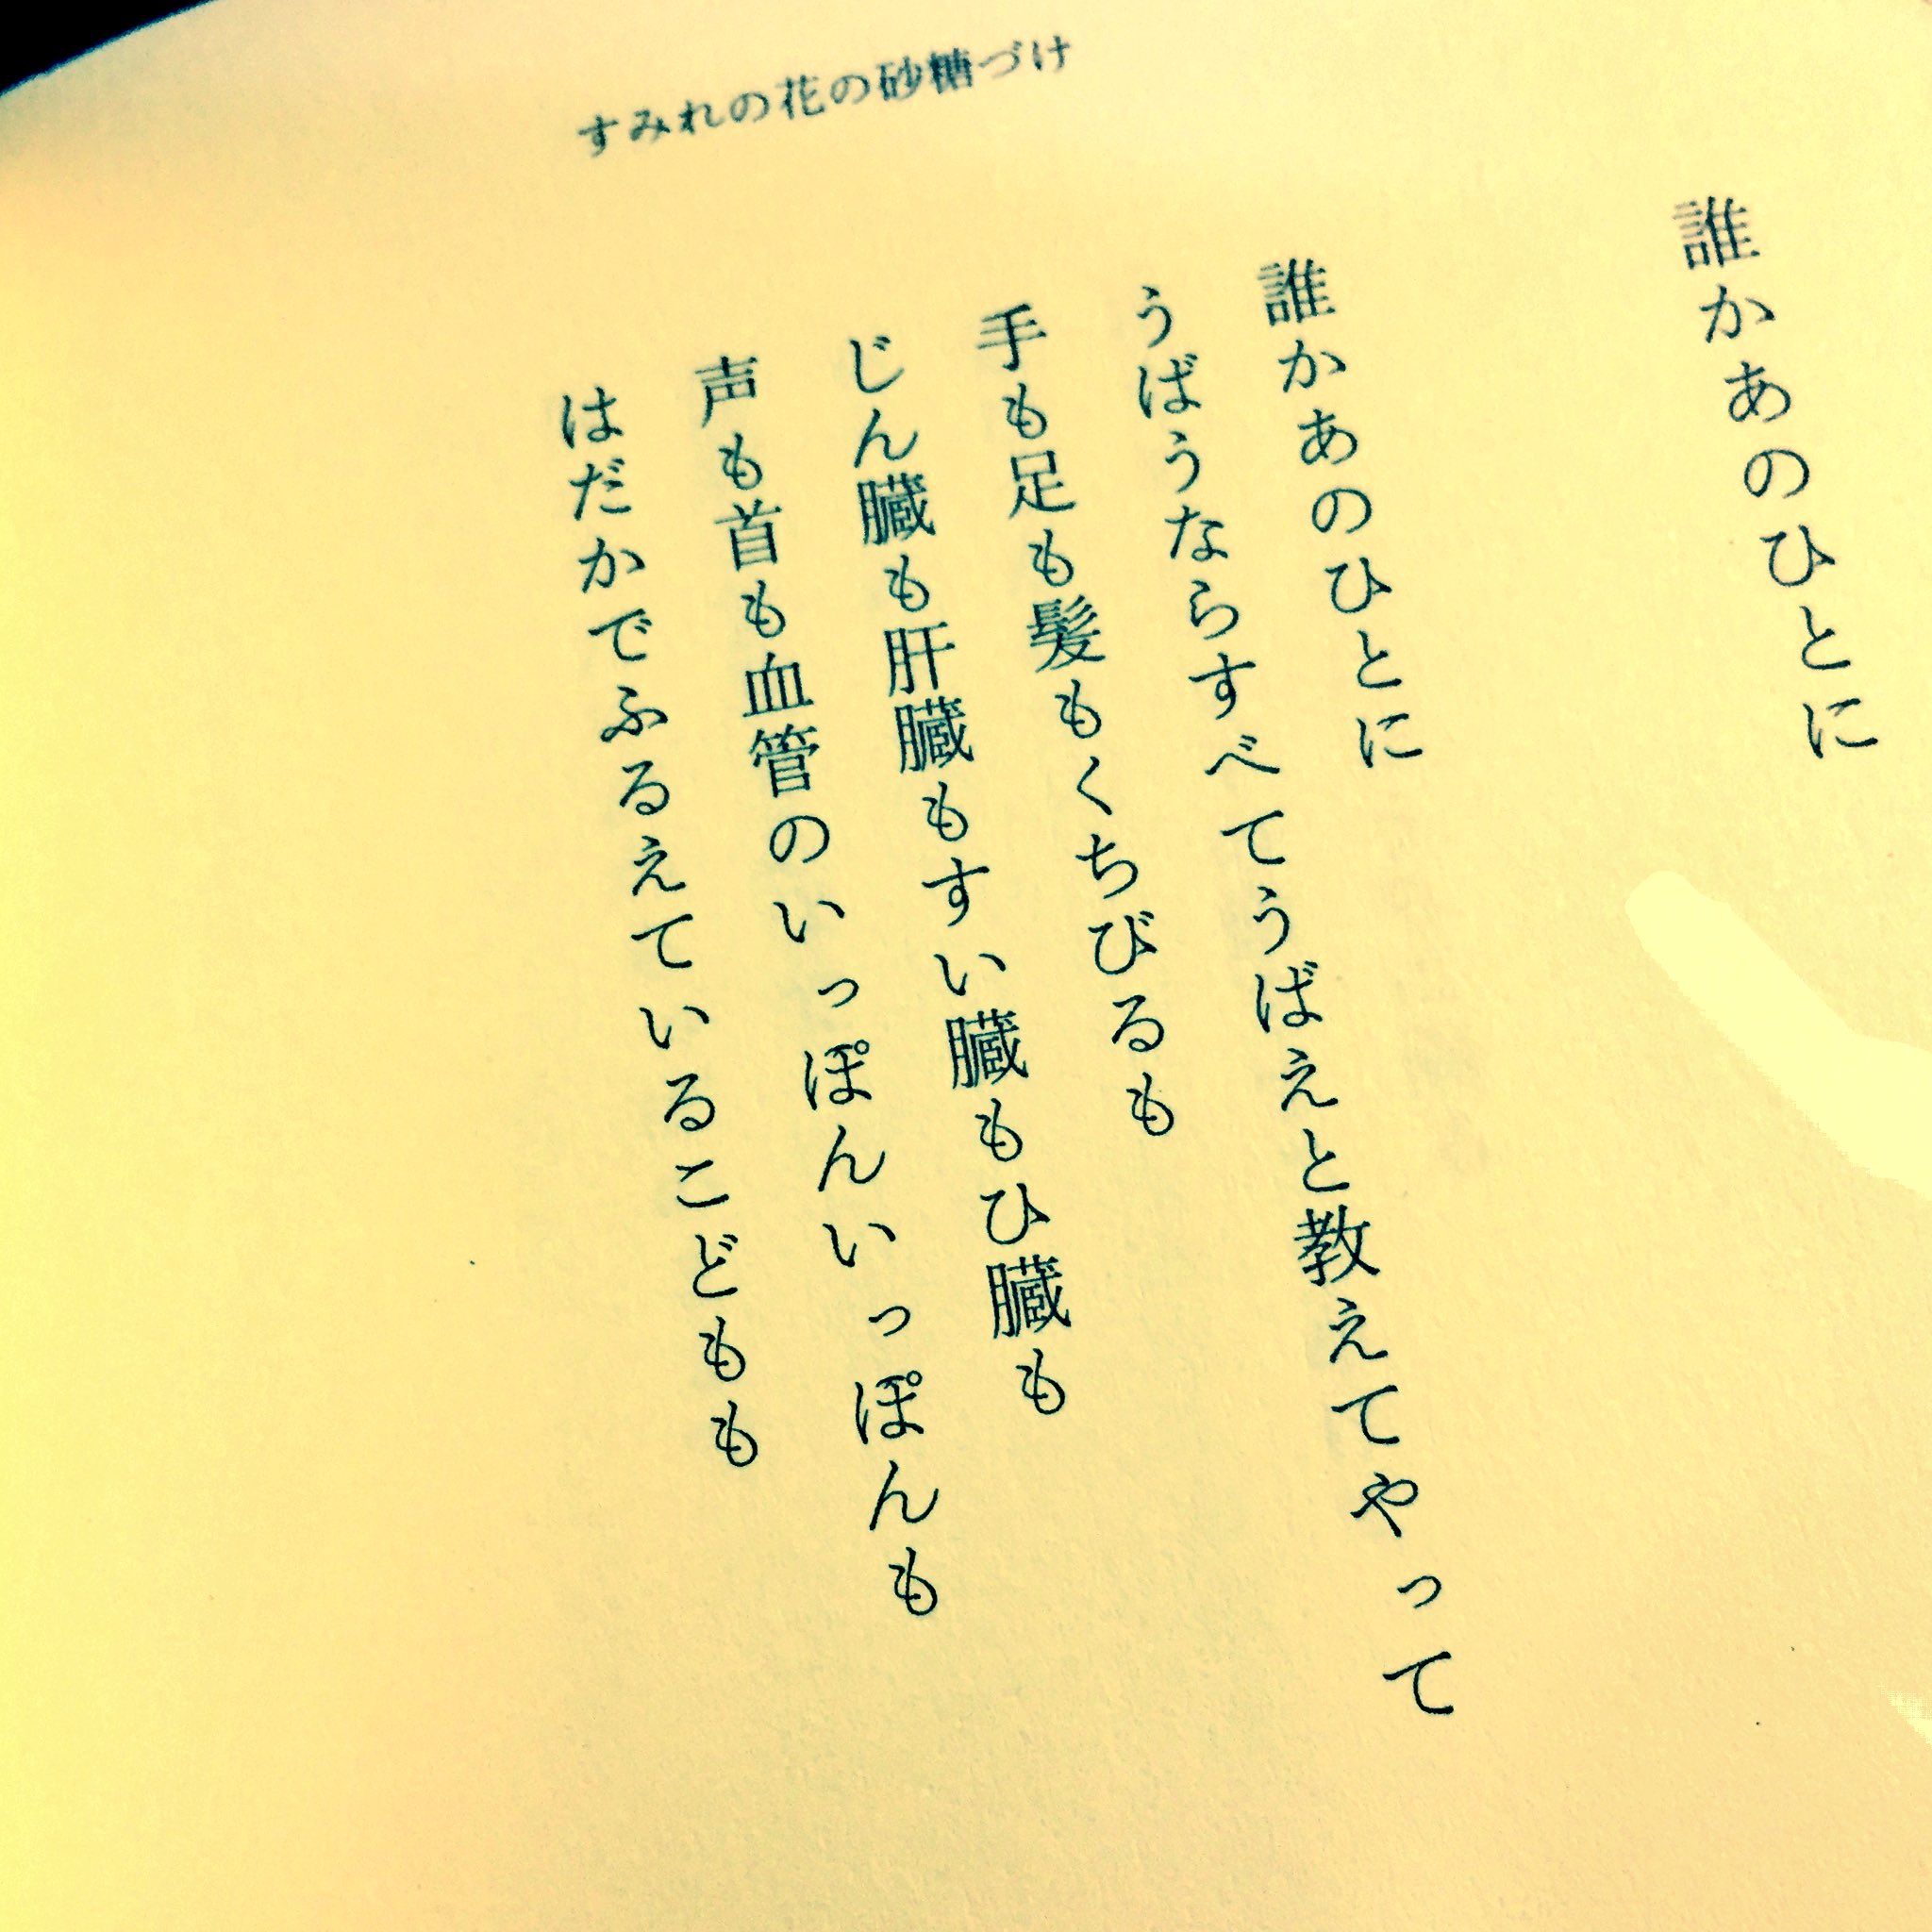 すみれの花の砂糖づけ
誰かあのひとに
誰かあのひとに
うばうならすべてうばえと教えてやって
手も足も髪もくちびるも
じん臓も肝臓もすい臓もひ臓も
声も首も血管のいっぽんいっぽんも
はだかでふるえているこどもも